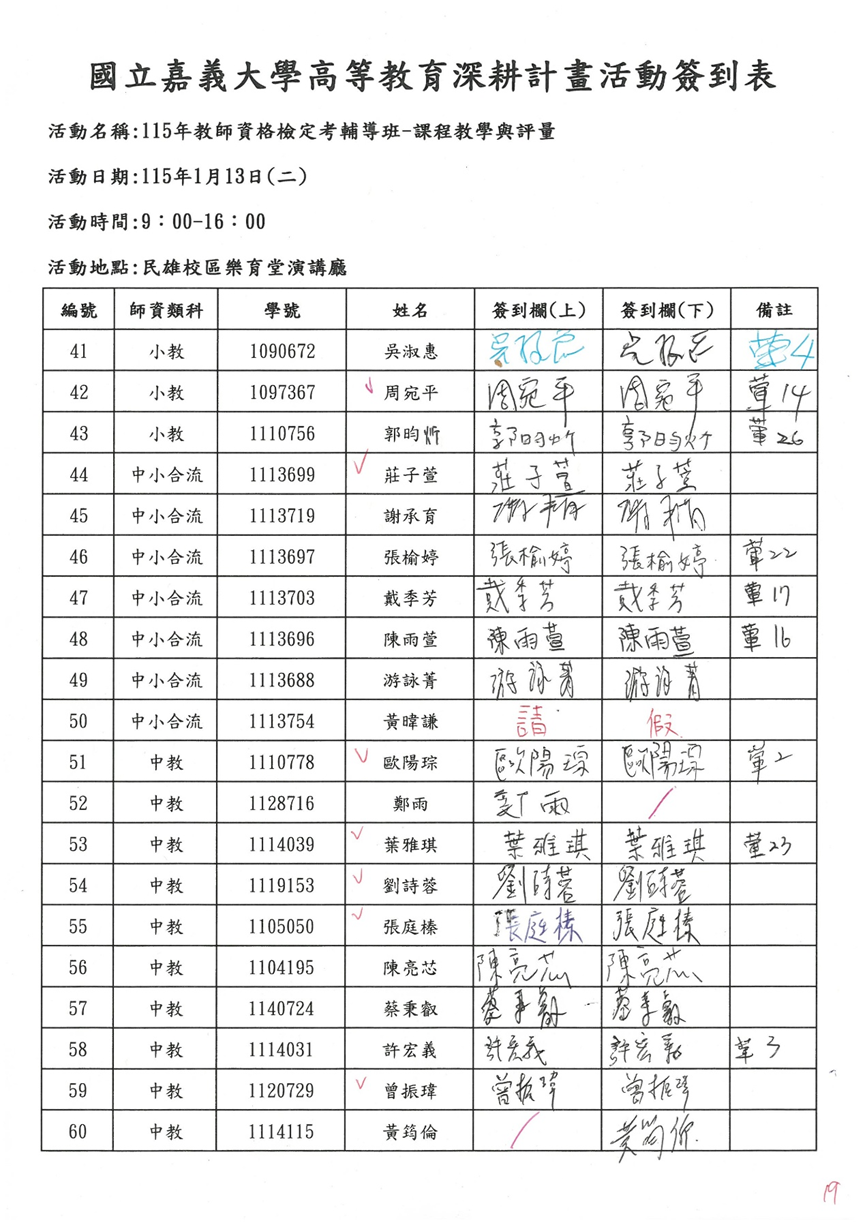 國立嘉義大學高等教育深耕計畫活動簽到表
活動名稱:115年教師資格檢定考輔導班-課程教學與評量
活動日期:115年1月13日(二)
活動時間:9：00-16：00
活動地點:民雄校區樂育堂演講廳
編號 師資類科 學號 姓名 簽到欄(上) 簽到欄(下) 備註
41 小教 1090672 吳淑惠 4
42 小教 1097367 ✓ 周宛平 周宛平 周宛平 14
43 小教 1110756 郭昀炘 郭昀炘 郭昀炘 26
44 中小合流 1113699 ✓ 莊子萱 莊子萱 莊子萱
45 中小合流 1113719 謝承育
46 中小合流 1113697 張榆婷 張榆婷 張榆婷 22
47 中小合流 1113703 戴季芳 戴季芳 戴季芳 17
48 中小合流 1113696 陳雨萱 陳雨萱 陳雨萱 16
49 中小合流 1113688 游詠菁 游詠菁 游詠菁
50 中小合流 1113754 黃暐謙 請 假
51 中教 1110778 ✓ 歐陽琮 歐陽琮 歐陽琮 2
52 中教 1128716 鄭雨 鄭雨 /
53 中教 1114039 ✓ 葉雅琪 葉雅琪 葉雅琪 23
54 中教 1119153 ✓ 劉詩蓉 劉詩蓉 劉詩蓉
55 中教 1105050 ✓ 張庭榛 張庭榛 張庭榛
56 中教 1104195 陳亮芯 陳亮芯 陳亮芯
57 中教 1140724 蔡秉叡 蔡秉叡 蔡秉叡
58 中教 1114031 許宏義 許宏義 許宏義 3
59 中教 1120729 ✓ 曾振瑋 曾振瑋 曾振瑋
60 中教 1114115 黃筠倫 / 黃筠倫
19